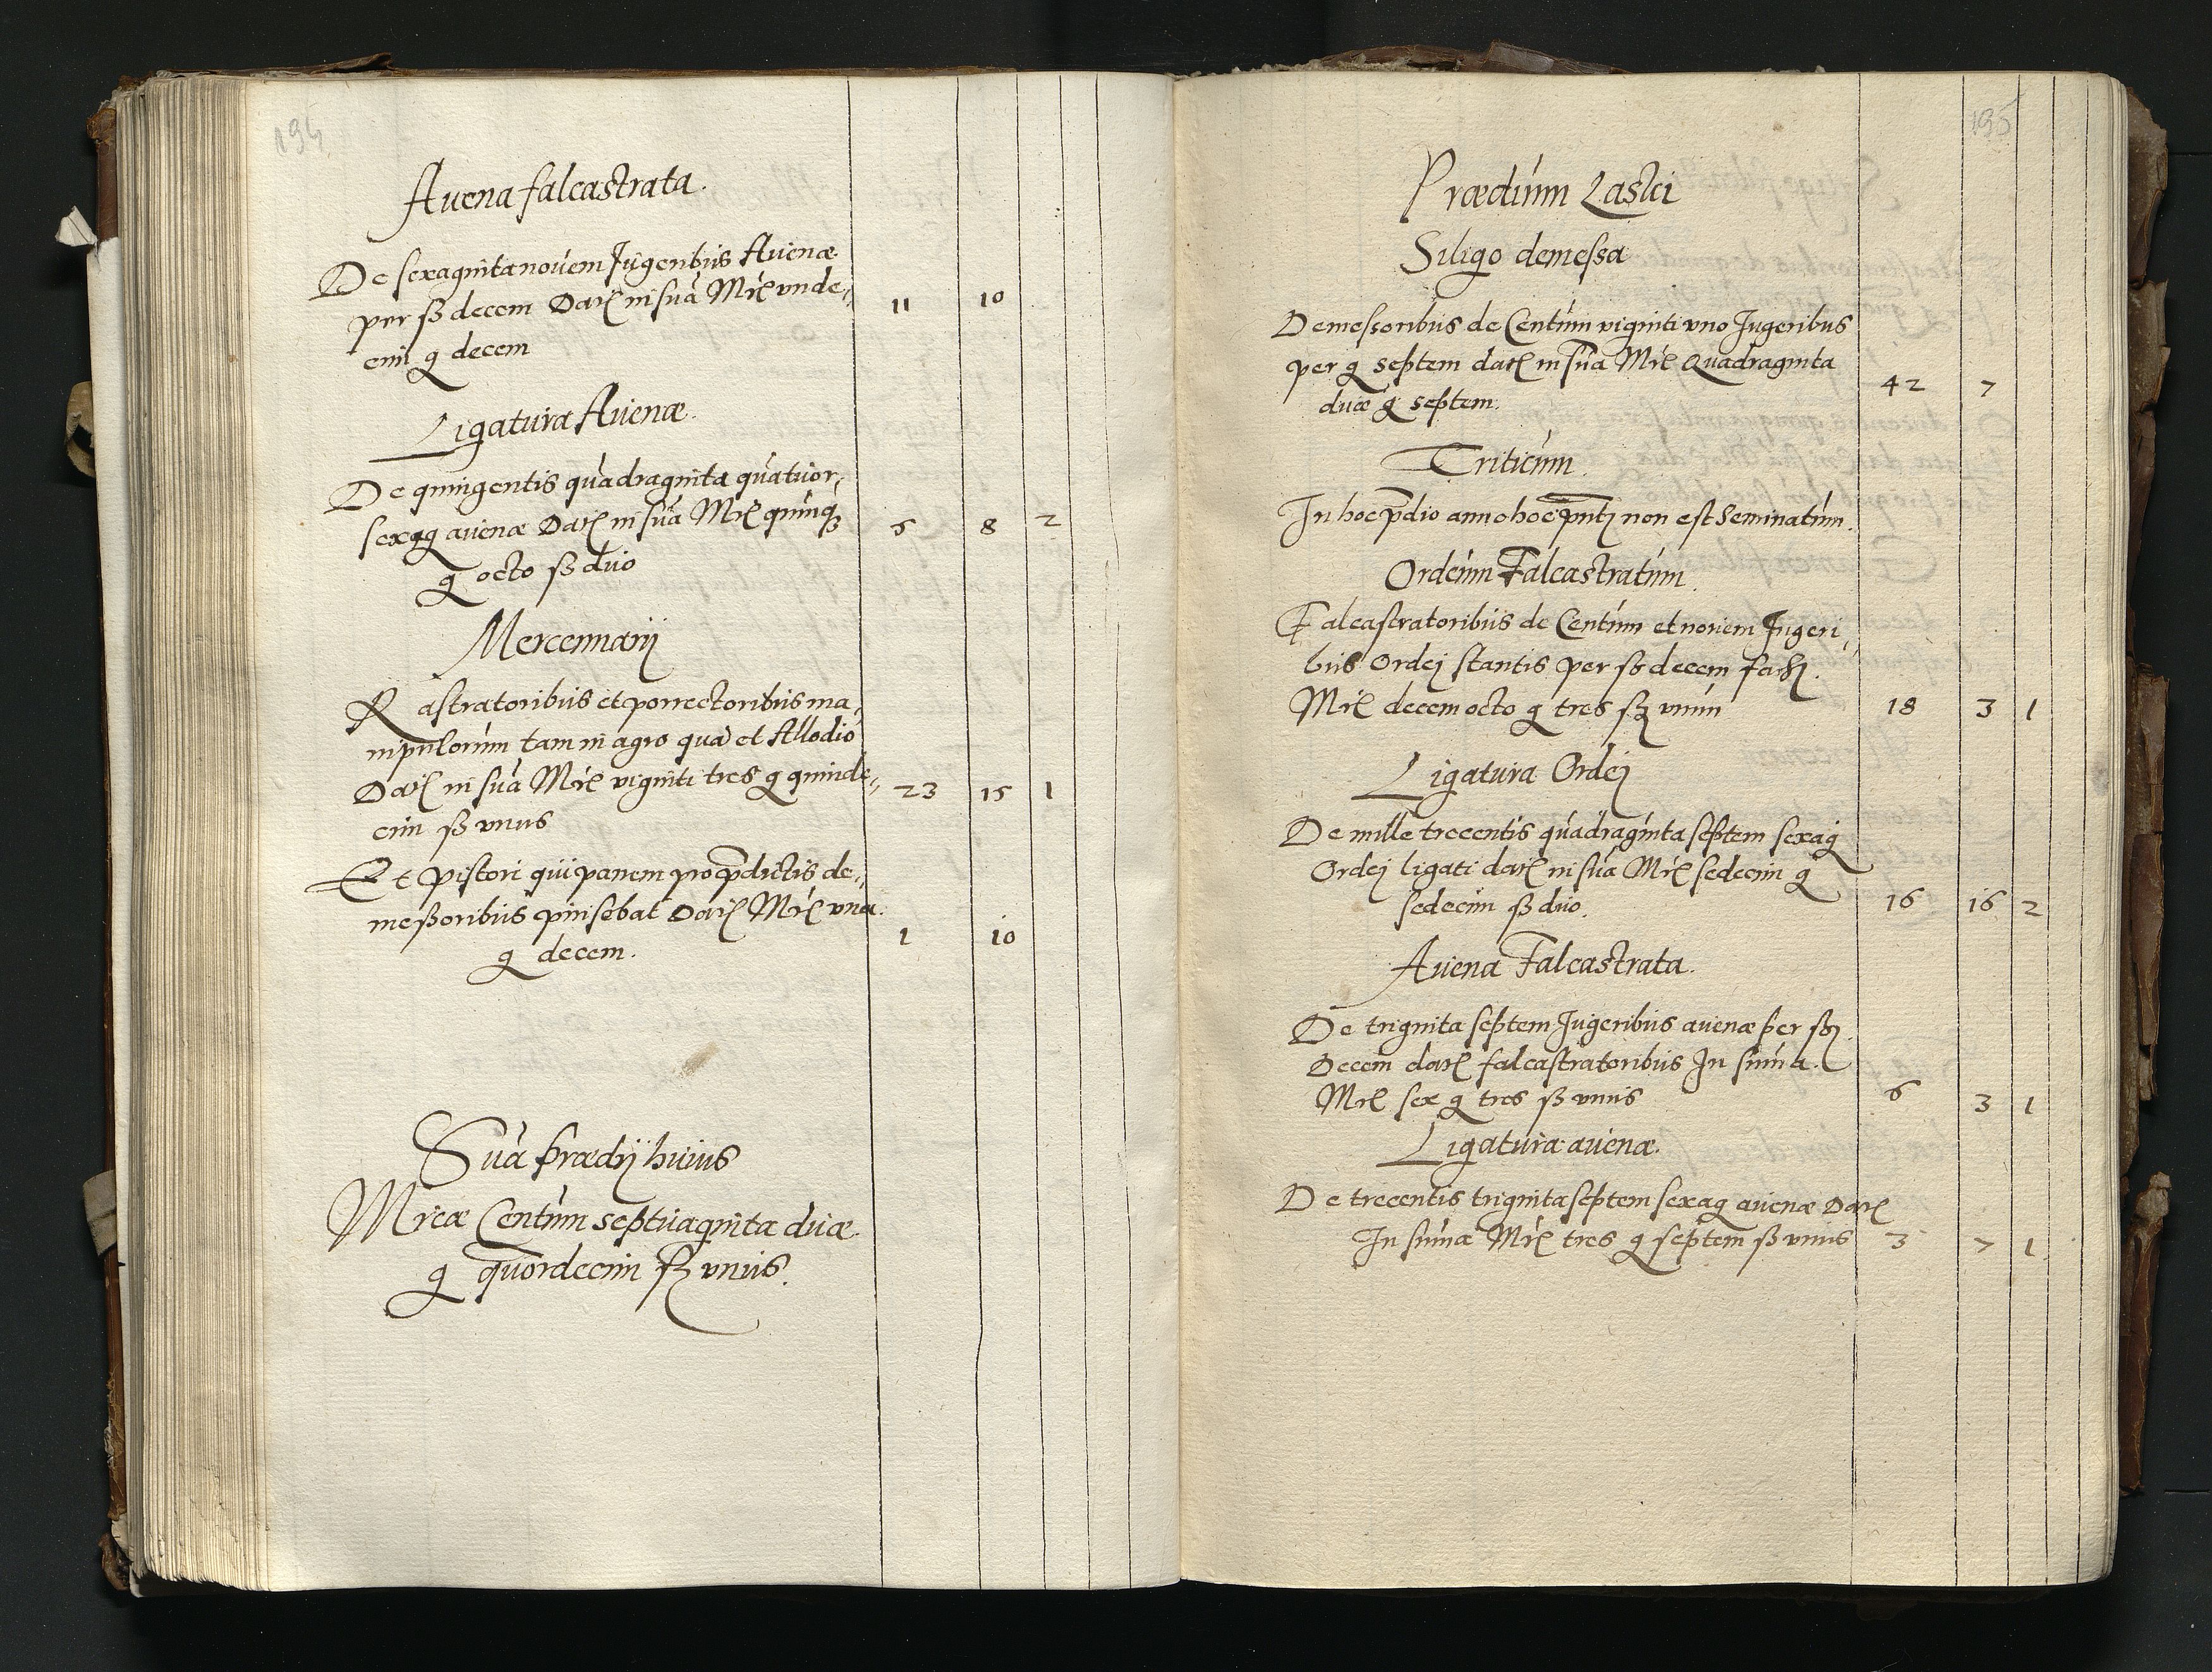 194
Auena falcastrata.
De sexaginta nouem Iugeribus Auenæ
per ß decem Datę in sūa Mrę vnde⸗ 11 10
cim g decem
Ligatura Auenæ.
De quingentis quadraginta quatuor
sexag auenæ Datę in sūa Mrę quinqʒ 5 8 2
g octo ß duo
Mercennarij
Rastratoribus et porrectoribus ma⸗
nipulorum tam in agro quā et Allodio
Datę in sūa Mrę viginti tres g quinde⸗ 23 15 1
cim ß vnus
Et Pistori qui panem pro p̄dictis de⸗
meßoribus pinsebat Datę Mrę vna. 1 10
g decem.
Sūa prædij huius
Mrcæ Centum septuaginta duæ
g quordecim ß vnus.
195
Prædium Laski
Siligo demessa
Demessoribus de Centum viginti vno Iugeribus
per g septem datę in sūa Mrę Quadraginta
duæ g septem. 42 7
Triticum.
In hoc p̄dio anno hoc p̄ntj non est Seminatum.
Ordeum Falcastratum.
Falcastratoribus de Centum et nouem Iugeri⸗
bus Ordej stantis per ß decem fac.
Mrę decem octo g tres ß vnum 18 3 1
Ligatura Ordej
De mille trecentis quadraginta septem sexag
Ordej ligati datę in sūa Mrę sedecim g
sedecim ß duo. 16 16 2
Auena Falcastrata.
De triginta septem Iugeribus auenæ per ß
Decem datę falcastratoribus In sum̄a.
Mrę sex g tres ß vnus 6 3 1
Ligatura auenæ.
De trecentis triginta septem sexag auenæ Datę
In sum̄a Mrę tres g septem ß vnus 3 7 1